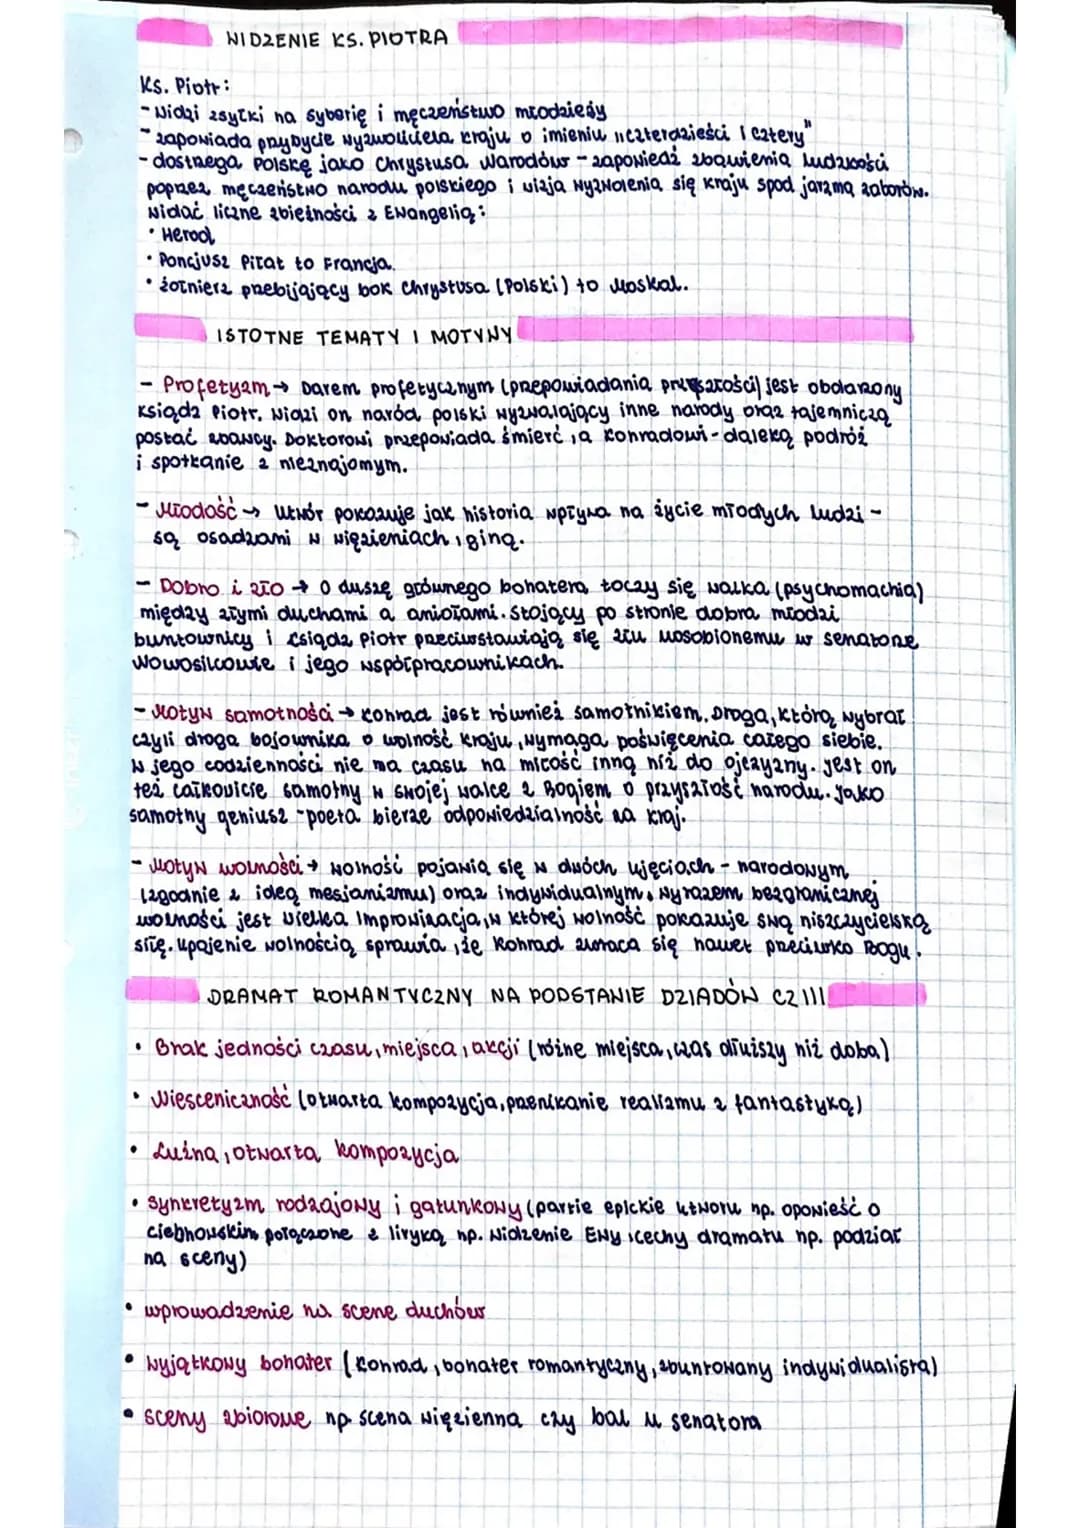 WIDZENIE KS. PIOTRA
Ks. Piotr:
- Widzi zsyłki na Syberię i męczeństwo młodzieży
- zapowiada przybycie wyzwoliciela kraju o imieniu „czterdzieści i cztery"
- dostrzega Polskę jako Chrystusa Narodów - zapowiedź zbawienia ludzkości
poprzez męczeństwo narodu polskiego i wizja wyzwolenia się kraju spod jarzma zaborów.
Widać liczne zbieżności z Ewangelią:
• Herod
• Poncjusz Piłat to Francja.
• żołnierz przebijający bok Chrystusa (Polski) to Moskal.
ISTOTNE TEMATY I MOTYWY
- Profetyzm → Darem profetycznym (przepowiadania przyszłości) jest obdarzony
ksiądz Piotr. Widzi on naród polski wyzwalający inne narody oraz tajemniczą
postać zbawcy. Doktorowi przepowiada śmierć, a Konradowi - daleką podróż
i spotkanie z nieznajomym.
- Młodość → Utwór pokazuje jak historia wpływa na życie młodych ludzi -
są osadzani w więzieniach, giną.
- Dobro i zło → O duszę głównego bohatera toczy się walka (psychomachia)
między złymi duchami a aniołami. Stojący po stronie dobra młodzi
buntownicy i ksiądz Piotr przeciwstawiają się złu uosobionemu w senatorze
Nowosilcowie i jego współpracownikach.
- Motyw samotności → Konrad jest również samotnikiem. Droga, którą wybrał
czyli droga bojownika o wolność kraju, wymaga poświęcenia całego siebie.
W jego codzienności nie ma czasu na miłość inną niż do ojczyzny. Jest on
też całkowicie samotny w swojej walce z Bogiem o przyszłość narodu. Jako
samotny geniusz - poeta bierze odpowiedzialność za kraj.
- Motyw wolności → Wolność pojawia się w dwóch ujęciach - narodowym
(zgodnie z ideą mesjanizmu) oraz indywidualnym. Wyrazem bezgranicznej
wolności jest Wielka Improwizacja, w której wolność pokazuje swą niszczycielską
siłę. Upojenie wolnością sprawia, że Konrad zwraca się nawet przeciwko Bogu.
DRAMAT ROMANTYCZNY NA PODSTAWIE DZIADÓW CZ III
• Brak jedności czasu, miejsca, akcji (różne miejsca, czas dłuższy niż doba)
• Niesceniczność (otwarta kompozycja, przenikanie realizmu z fantastyką)
• Luźna, otwarta kompozycja
• Synkretyzm rodzajowy i gatunkowy (partie epickie utworu np. opowieść o
Cichowskim połączone z liryką np. Widzenie Ewy, cechy dramatu np. podział
na sceny)
• wprowadzenie na scene duchów
• Wyjątkowy bohater (Konrad, bohater romantyczny, zbuntowany indywidualista)
• sceny zbiorowe np. scena więzienna czy bal u senatora